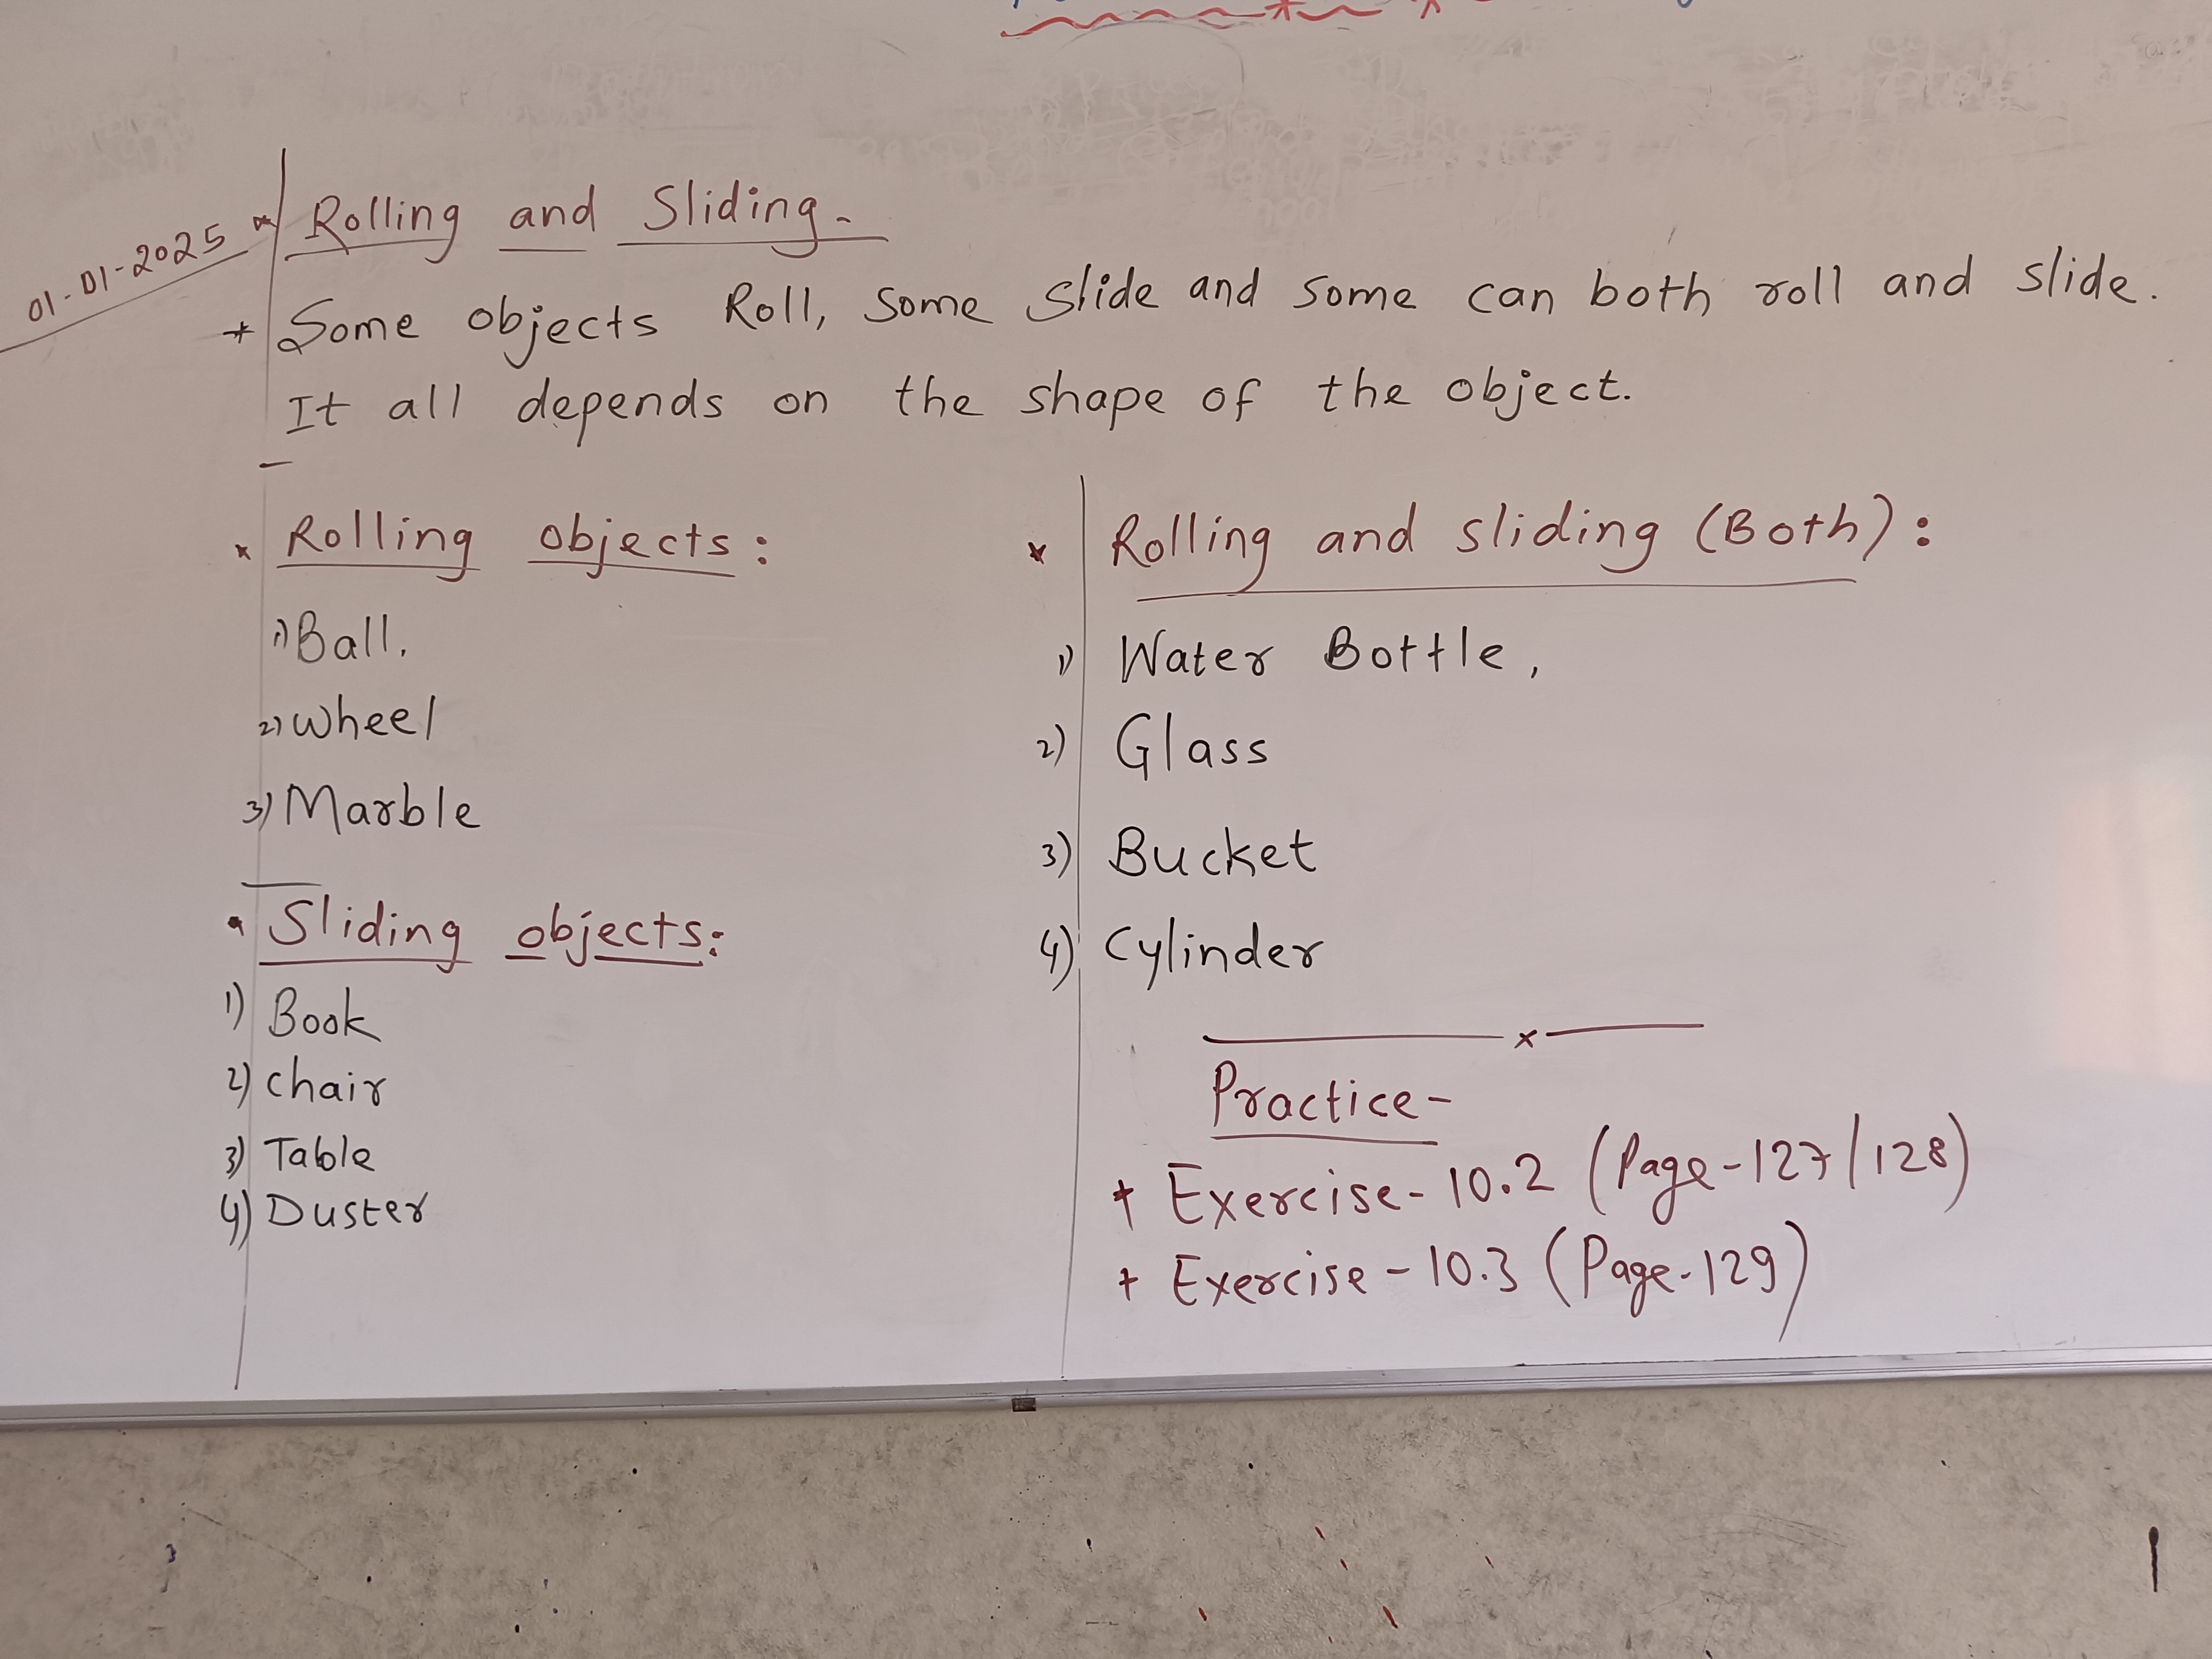 01-01-2025
* Rolling and Sliding -
* Some objects Roll, Some Slide and some can both roll and slide.
It all depends on the shape of the object.
* Rolling objects:
1) Ball,
2) Wheel
3) Marble
* Sliding objects:
1) Book
2) chair
3) Table
4) Duster
* Rolling and sliding (Both):
1) Water Bottle,
2) Glass
3) Bucket
4) Cylinder
Practice-
* Exercise- 10.2 (Page-127/128)
* Exercise - 10.3 (Page-129)